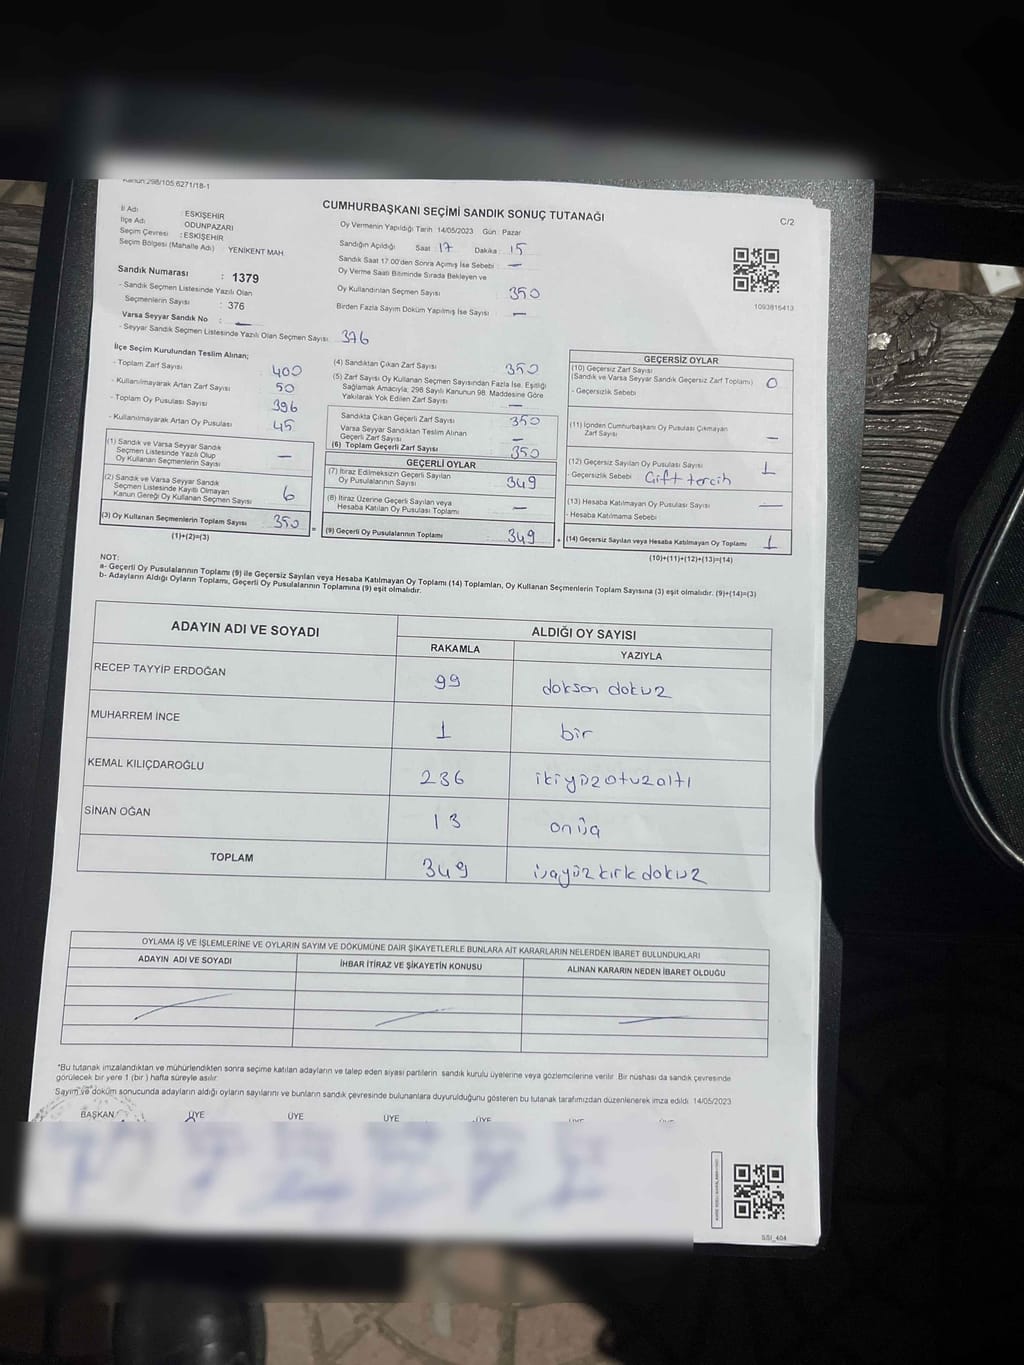 Kanun:298/105,6271/18-1
CUMHURBAŞKANI SEÇİMİ SANDIK SONUÇ TUTANAĞI
C/2
İl Adı : ESKİŞEHİR
İlçe Adı : ODUNPAZARI
Seçim Çevresi : ESKİŞEHİR
Seçim Bölgesi (Mahalle Adı) : YENİKENT MAH
Oy Vermenin Yapıldığı Tarih 14/05/2023 Gün : Pazar
Sandığın Açıldığı Saat 17 Dakika : 15
Sandık Saat 17.00'den Sonra Açmış İse Sebebi : —
Oy Verme Saati Bitiminde Sırada Bekleyen ve
Oy Kullandırılan Seçmen Sayısı : 350
Birden Fazla Sayım Döküm Yapılmış İse Sayısı : —
1093816413
Sandık Numarası : 1379
- Sandık Seçmen Listesinde Yazılı Olan
Seçmenlerin Sayısı : 376
Varsa Seyyar Sandık No : —
- Seyyar Sandık Seçmen Listesinde Yazılı Olan Seçmen Sayısı : 376
İlçe Seçim Kurulundan Teslim Alınan;
- Toplam Zarf Sayısı : 400
- Kullanılmayarak Artan Zarf Sayısı : 50
- Toplam Oy Pusulası Sayısı : 396
- Kullanılmayarak Artan Oy Pusulası : 45
(1) Sandık ve Varsa Seyyar Sandık
Seçmen Listesinde Yazılı Olup
Oy Kullanan Seçmenlerin Sayısı —
(2) Sandık ve Varsa Seyyar Sandık
Seçmen Listesinde Kayıtlı Olmayan
Kanun Gereği Oy Kullanan Seçmen Sayısı 6
(3) Oy Kullanan Seçmenlerin Toplam Sayısı 350 =
(1)+(2)=(3)
(4) Sandıktan Çıkan Zarf Sayısı 350
(5) Zarf Sayısı Oy Kullanan Seçmen Sayısından Fazla İse, Eşitliği
Sağlamak Amacıyla, 298 Sayılı Kanunun 98. Maddesine Göre
Yakılarak Yok Edilen Zarf Sayısı —
Sandıkta Çıkan Geçerli Zarf Sayısı 350
Varsa Seyyar Sandıktan Teslim Alınan
Geçerli Zarf Sayısı —
(6) Toplam Geçerli Zarf Sayısı 350
GEÇERLİ OYLAR
(7) İtiraz Edilmeksizin Geçerli Sayılan
Oy Pusulalarının Sayısı 349
(8) İtiraz Üzerine Geçerli Sayılan veya
Hesaba Katılan Oy Pusulası Toplamı —
(9) Geçerli Oy Pusulalarının Toplamı 349 +
GEÇERSİZ OYLAR
(10) Geçersiz Zarf Sayısı
(Sandık ve Varsa Seyyar Sandık Geçersiz Zarf Toplamı) 0
- Geçersizlik Sebebi
(11) İçinden Cumhurbaşkanı Oy Pusulası Çıkmayan
Zarf Sayısı —
(12) Geçersiz Sayılan Oy Pusulası Sayısı 1
- Geçersizlik Sebebi Çift tercih
(13) Hesaba Katılmayan Oy Pusulası Sayısı —
- Hesaba Katılmama Sebebi
(14) Geçersiz Sayılan veya Hesaba Katılmayan Oy Toplamı 1
(10)+(11)+(12)+(13)=(14)
NOT:
a- Geçerli Oy Pusulalarının Toplamı (9) ile Geçersiz Sayılan veya Hesaba Katılmayan Oy Toplamı (14) Toplamları, Oy Kullanan Seçmenlerin Toplam Sayısına (3) eşit olmalıdır. (9)+(14)=(3)
b- Adayların Aldığı Oyların Toplamı, Geçerli Oy Pusulalarının Toplamına (9) eşit olmalıdır.
ADAYIN ADI VE SOYADI ALDIĞI OY SAYISI
RAKAMLA YAZIYLA
RECEP TAYYİP ERDOĞAN 99 doksan dokuz
MUHARREM İNCE 1 bir
KEMAL KILIÇDAROĞLU 236 ikiyüzotuzaltı
SİNAN OĞAN 13 onüç
TOPLAM 349 üçyüzkırkdokuz
OYLAMA İŞ VE İŞLEMLERİNE VE OYLARIN SAYIM VE DÖKÜMÜNE DAİR ŞİKAYETLERLE BUNLARA AİT KARARLARIN NELERDEN İBARET BULUNDUKLARI
ADAYIN ADI VE SOYADI İHBAR İTİRAZ VE ŞİKAYETİN KONUSU ALINAN KARARIN NEDEN İBARET OLDUĞU
*Bu tutanak imzalandıktan ve mühürlendikten sonra seçime katılan adayların ve talep eden siyasi partilerin sandık kurulu üyelerine veya gözlemcilerine verilir. Bir nüshası da sandık çevresinde
görülecek bir yere 1 (bir) hafta süreyle asılır.
Sayım ve döküm sonucunda adayların aldığı oyların sayılarını ve bunların sandık çevresinde bulunanlara duyurulduğunu gösteren bu tutanak tarafımızdan düzenlenerek imza edildi. 14/05/2023
BAŞKAN ÜYE ÜYE ÜYE ÜYE
SSİ_404